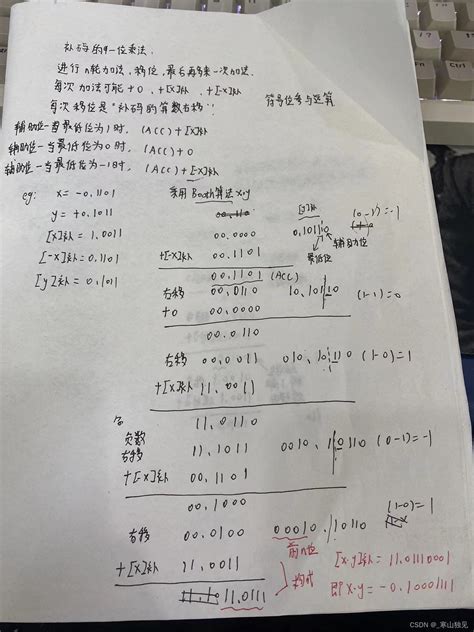 补码的一位乘法.
进行n轮加法、移位,最后再多来一次加法.
每次加法可能+0、+[X]补、+[-X]补
每次移位是"补码的算数右移"! 符号位参与运算
辅助位-当最低位为1时, (ACC)+[X]补
辅助位-当最低位为0时, (ACC)+0
辅助位-当最低位为-1时, (ACC)+[-X]补
eg: x=-0.1101 采用Booth算法x·y
y=+0.1011 [y]补
[X]补=1.0011 00.0000 0.10110 (0-1)=-1
[-X]补=0.1101 +[-X]补 00.1101 最低位 辅助位
[y]补=0.1011 00.1101 (ACC)
右移 00.0110 10.10110 (1-1)=0
+0 00.0000
00.0110
右移 00.0011 010.10110 (1-0)=1
+[X]补 11.0011
11.0110
负数
右移 11.1011 0010.10110 (0-1)=-1
+[-X]补 00.1101
00.1000
右移 00.0100 00010.10110 (1-0)=1
+[X]补 11.0011 前n位 [x·y]补=11.01110001
11.0111 构成 即x·y=-0.10001111
CSDN @_寒山独见